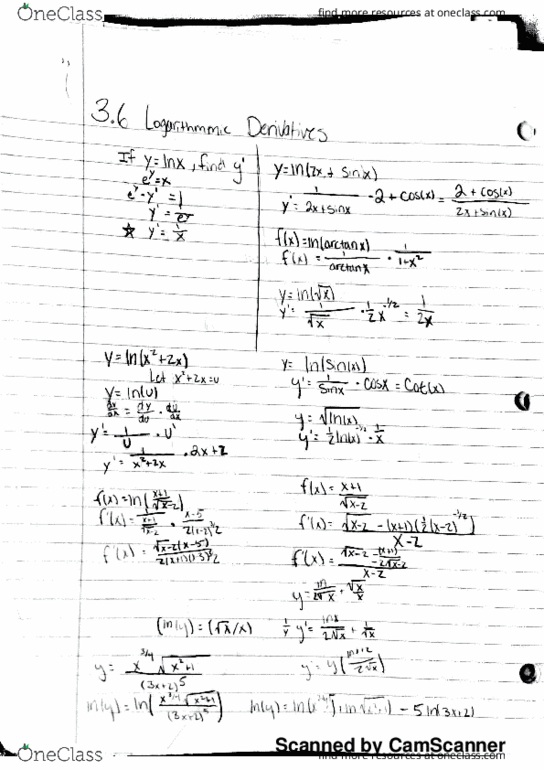 OneClass
find more resources at oneclass.com
3.6 Logarithmmic Derivatives
If y=lnx, find y'
e^y=x
e^y·y'=1
y'=1/e^y
★ y'=1/x
y=ln(2x+sin(x))
y'= 1/(2x+sinx) ·2+cos(x)= (2+cos(x))/(2x+sin(x))
f(x)=ln(arctanx)
f'(x)= 1/arctanx · 1/(1+x²)
y=ln(√x)
y'= 1/√x · 1/2 x^(-1/2) = 1/(2x)
y=ln(x²+2x)
Let x²+2x=u
y=ln(u)
dy/dx = dy/du · du/dx
y'= 1/u · u'
y'= 1/(x²+2x) · 2x+2
y= ln(sin(x))
y'= 1/sinx · cosx = cot(x)
y= √ln(x)
y'= 1/2 ln(x)^(-1/2) · 1/x
f(x)=ln((x+1)/√(x-2))
f'(x)= 1/((x+1)/√(x-2)) · (x-5)/(2(x-2)^(3/2))
f'(x)= √(x-2)(x-5)
f(x)= (x+1)/√(x-2)
f'(x)= (√(x-2) - (x+1)(1/2(x-2)^(-1/2)))/(x-2)
f'(x)= (√(x-2) - (x+1)/(2√(x-2)))/(x-2)
(ln(y)=(√x/x)
1/y y'= lnx/(2√x) + 1/√x
y= x^(3/4) √(x²+1) / (3x+2)^5
y'=y((lnx+2)/(2√x))
ln(y)=ln(x^(3/4) √(x²+1) / (3x+2)^5)
- 5ln(3x+2)
Scanned by CamScanner
OneClass
find more resources at oneclass.com